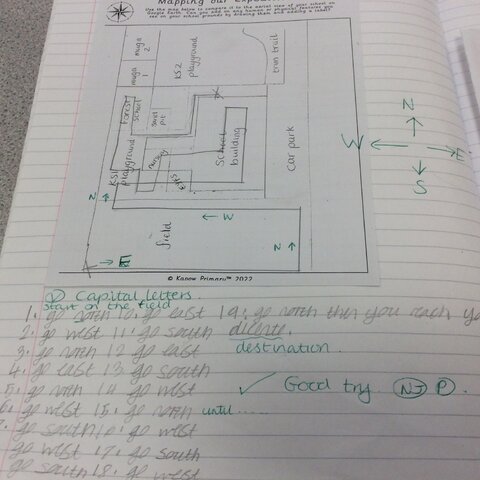 Mapping our
Use the map below to compare it to the aerial view of your school on
Google Earth. Can you add on any human or physical features you
see on your school grounds by drawing them and adding a label?
muga 2
muga 1
KS2 playground
trim trail
forest school
sand pit
KS1 playground
nursery
School building
Car park
N
W
E
S
N
W
N
E
field
© Kapow Primary™ 2022
Capital letters.
start on the field
1. go north 10. go east 19. go north then you reach
2. go west 11. go south
3. go north 12 go east destination.
4. go east 13. go south
5. go north 14. go west ✓ Good try. NJ P.
6. go west 15. go north until ......
7. go south 16. go west
go west 17. go south
go south 18. go west